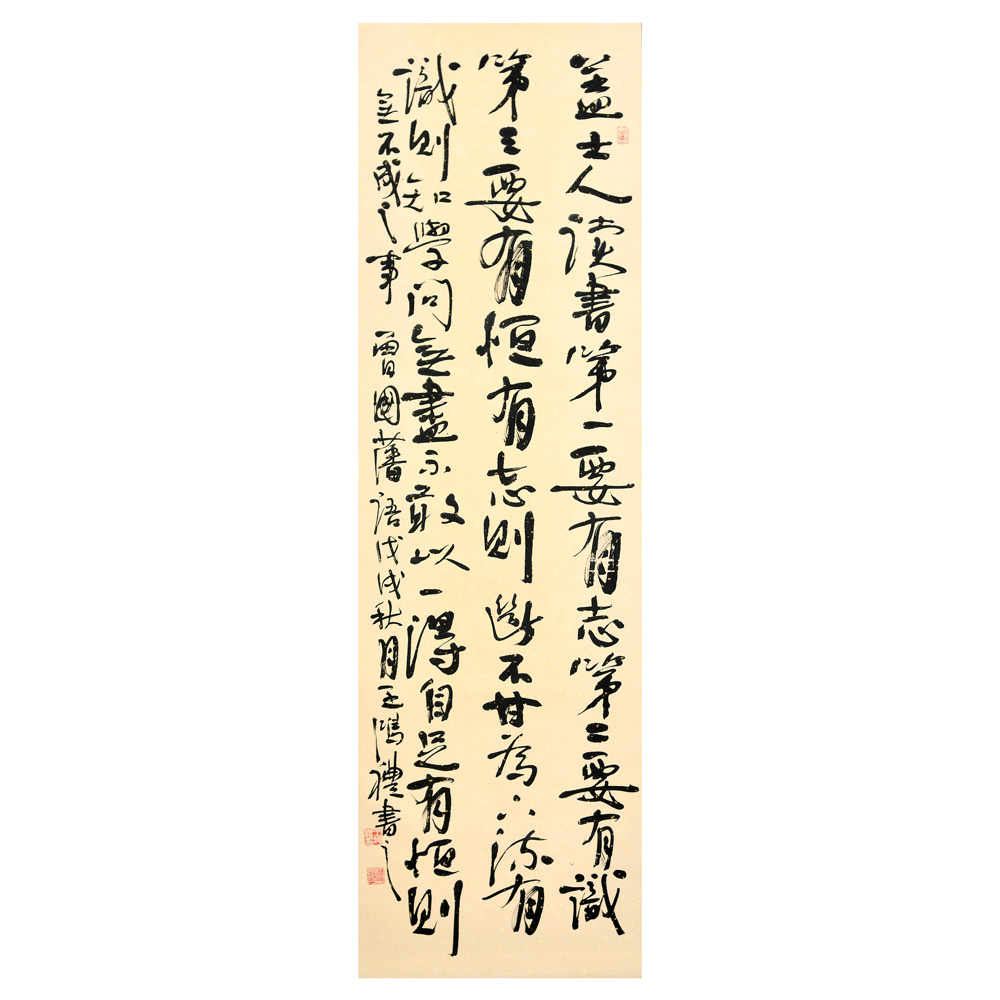 蓋士人读書第一要有志第二要有識
第三要有恒有志則斷不甘為下流有
識則知學問無盡不敢以一得自足有恒則
無不成之事 曾國藩語戊戌秋月王鴻禮書之